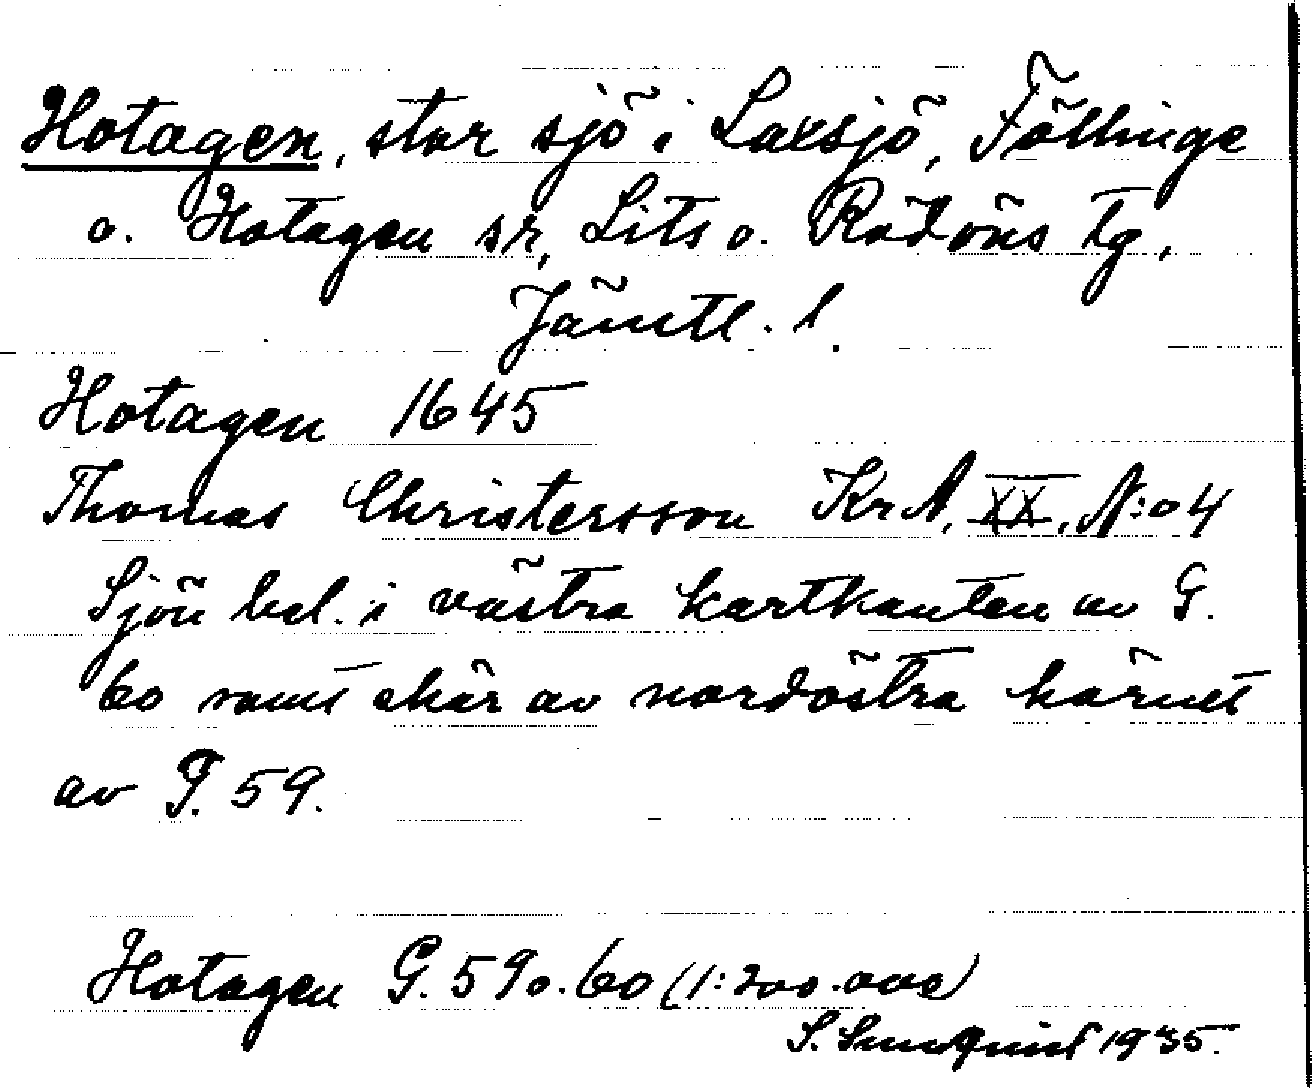 Hotagen, stor sjö i Laxsjö, Föllinge
o. Hotagen sr, Lits o. Rödöns tg,
Jämtl. l.
Hotagen 1645
Thomas Christersson KrA, XX, N:o 4
Sjön bel. i västra kartkanten av G.
60 samt skär av nordöstra hörnet
av G. 59.
Hotagen G. 59 o. 60 (1:200.000)
S. Sundquist 1935.